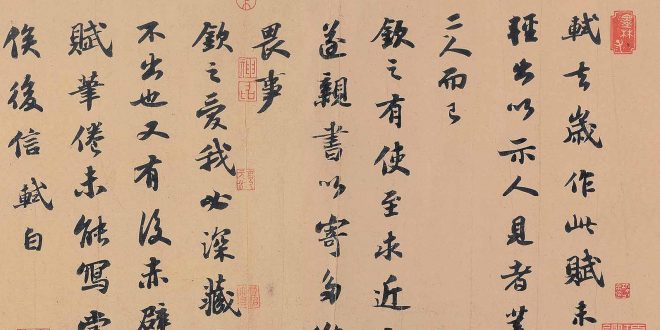 軾去歲作此賦未
輕出以示人見者
二人而已
欽之有使至求近
遂親書以寄多
畏事
欽之愛我必深藏
不出也又有後赤壁
賦筆倦未能寫當
俟後信軾白